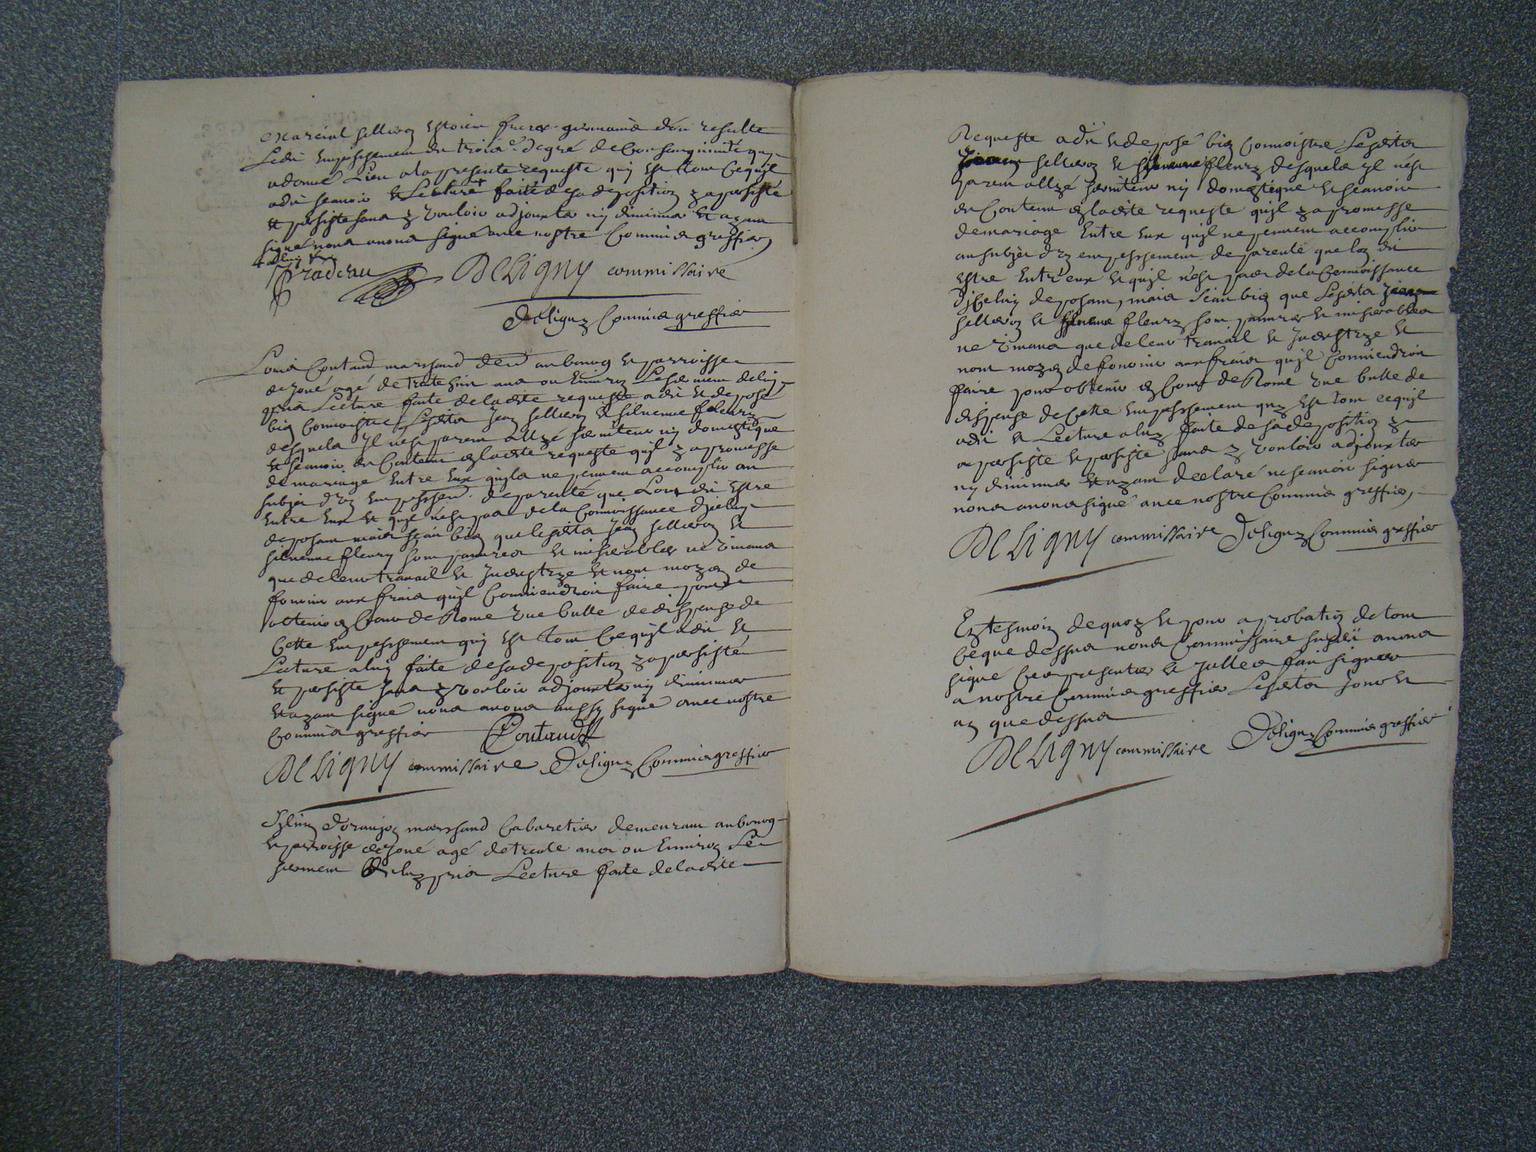 martial sellieron estoien freres germains don resulte
ledit empeschement du trois.e degré de consanguinité quy
a donné lieu a la presente requeste quy est tout ce quil
a dit scavoir et Lecture faite de sa deposition y a persisté
et persiste sans y vouloir adjouster ny diminuer et ayans
signé nous avons signé avec nostre Commis greffier
Pradeau DELIGNY commissaire
Deligny Commis greffier
Louis Coutaud marchand dem.t au bourg et parroisse
de Joué agé de trente six ans ou Environ Le serment de luy
pris Lecture faite de ladite requeste a dit et deposé
bien Connoistre Lesdits Jean sellieron et silvenne fleury
desquels yl nest parent allyé serviteur ny domestique
et scavoir du Contenu en ladite requeste quyl y a promesse
de mariage entre eux quyls ne peuvent accomplir au
subjet d'un empeschem.t de parenté que Lon dit estre
entre eux et quy nest pas de la Connoissance dyceluy
deposant mais scait bien que lesdits Jean sellieron et
silvenne fleury sont pauvres et miserables ne vivans
que de leur travail et Industrye et nont moyen de
fournir aux frais quyl Conviendroit faire pour
obtenir en Cour de Rome une bulle de dispense de
Cette empeschement quy est tout Ce quyl a dit et
Lecture a luy faite de sa deposition y a persisté
et persiste sans y vouloir adjouster ny diminuer
et ayant signé nous avons aussy signé avec nostre
Commis greffier Coutaud
DELIGNY commissaire Deligny Commis greffier
marchand Cabaretier demeurant au bourg
et parroisse de Joué agé de trente ans ou Environ Le
serment de luy pris Lecture faite de ladite
Requeste a dit et deposé bien Connoistre Lesdits
sellieron et fleury desquels yl nest
parent allyé serviteur ny domestique et scavoir
du Contenu en ladite requeste quyl y a promesse
de mariage Entre eux quyl ne peuvent accomplir
au subjet d'un empeschement de parenté que lon dit
estre Entr'eux et quyl nest pas de la Connoissance
dyceluy deposant, mais scait bien que Lesdits
sellieron et fleury sont pauvres et miserables
ne vivans que de leur travail et Industrye et
nont moyen de fournir aux frais quyl Conviendroit
faire pour obtenir en Cour de Rome une bulle de
dispense de Cette empeschement quy est tout ce quyl
a dit et Lecture a luy faite de sa deposition y
a persisté et persiste sans y vouloir adjouster
ny diminuer et ayant declaré ne scavoir signer
nous avons signé avec nostre Commis greffier
DELIGNY commissaire Deligny Commis greffier
En tesmoin de quoy et pour aprobation de tout
ce que dessus nous Commissaire susdit avons
signé Ces presentes et ycelles fait signer
a nostre Commis greffier Lesdits Jour et
an que dessus
DELIGNY commissaire Deligny Commis greffier